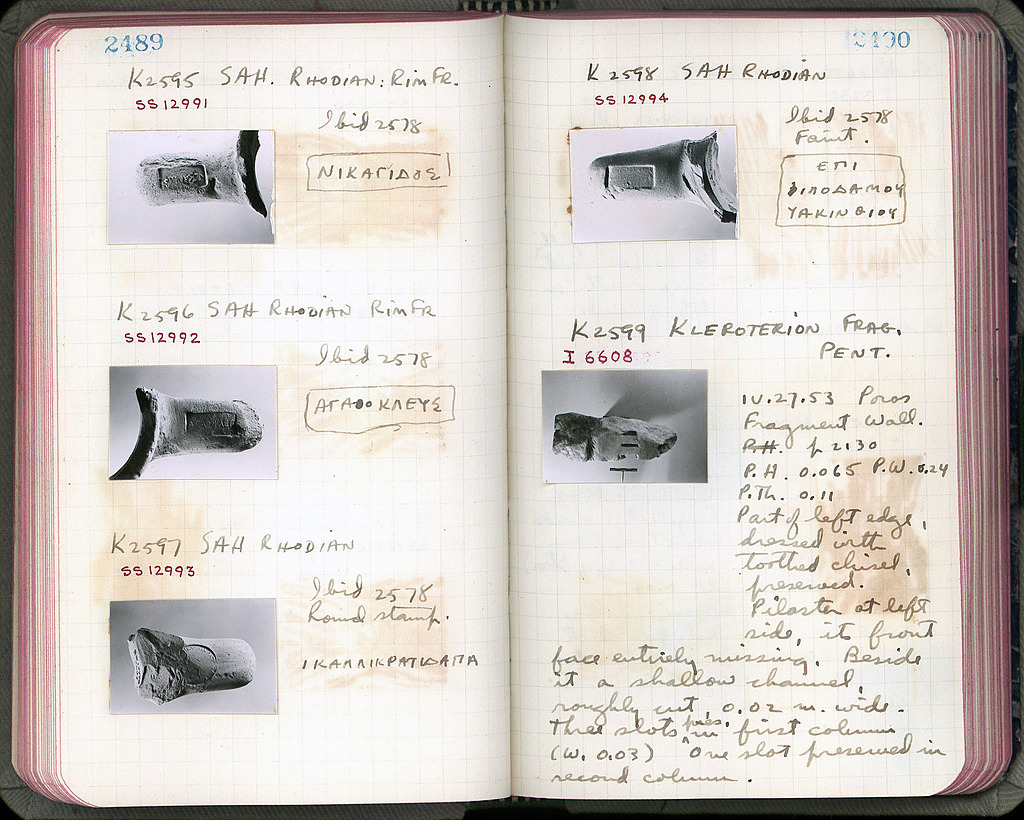 2489
K2595 SAH. RHODIAN: RIM FR.
SS 12991
Ibid 2578
ΝΙΚΑΓΙΔΟΣ
K2596 SAH RHODIAN RIM FR
SS 12992
Ibid 2578
ΑΓΑΘΟΚΛΕΥΣ
K2597 SAH RHODIAN
SS 12993
Ibid 2578
Round stamp.
2490
K2598 SAH RHODIAN
SS 12994
Ibid 2578
Faint.
ΕΠΙ
ΦΙΛΟΔΑΜΟΥ
ΥΑΚΙΝΘΙΟΥ
K2599 KLEROTERION FRAG.
PENT.
I 6608
IV.27.53 Poros
Fragment Wall.
P.H. p 2130
P.H. 0.065 P.W. 0.24
P.Th. 0.11
Part of left edge,
dressed with
toothed chisel,
preserved.
Pilaster at left
side, its front
face entirely missing. Beside
it a shallow channel,
roughly cut, 0.02 m. wide.
Three slots pres. in first column
(W. 0.03) One slot preserved in
second column.